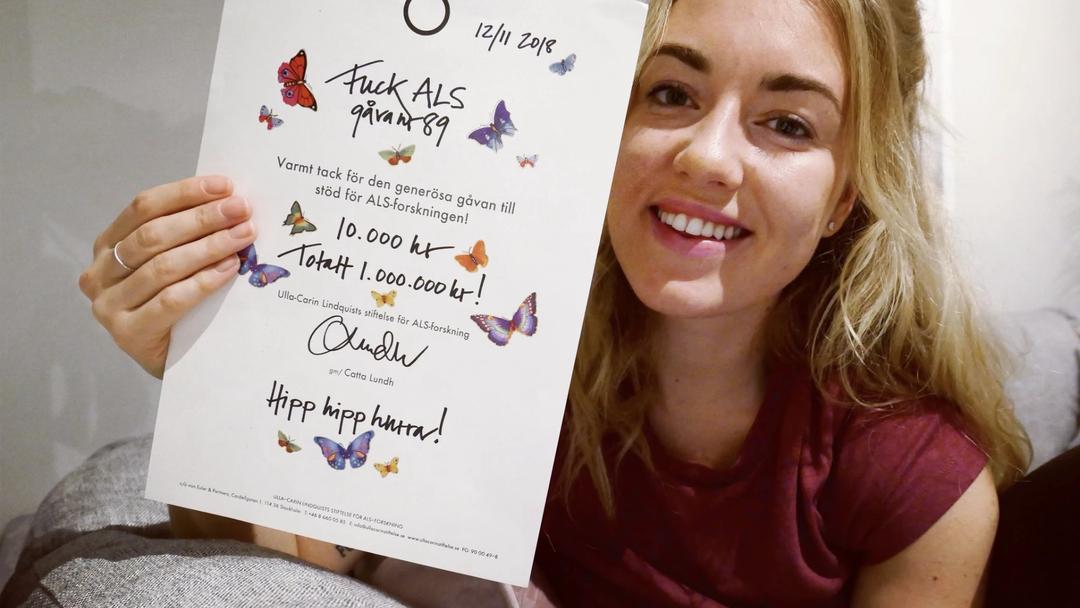 12/11 2018
Fuck ALS
gåva nr 89
Varmt tack för den generösa gåvan till
stöd för ALS-forskningen!
10.000 kr
Totalt 1.000.000 kr!
Ulla-Carin Lindquists stiftelse för ALS-forskning
gm/ Catta Lundh
Hipp hipp hurra!
ULLA-CARIN LINDQUISTS STIFTELSE FÖR ALS-FORSKNING
c/o von Euler & Partners, Cardellgatan 1, 114 36 Stockholm T: +46 8 660 05 85 E: info@ullacarinstiftelse.se www.ullacarinstiftelse.se PG: 90 00 49-8